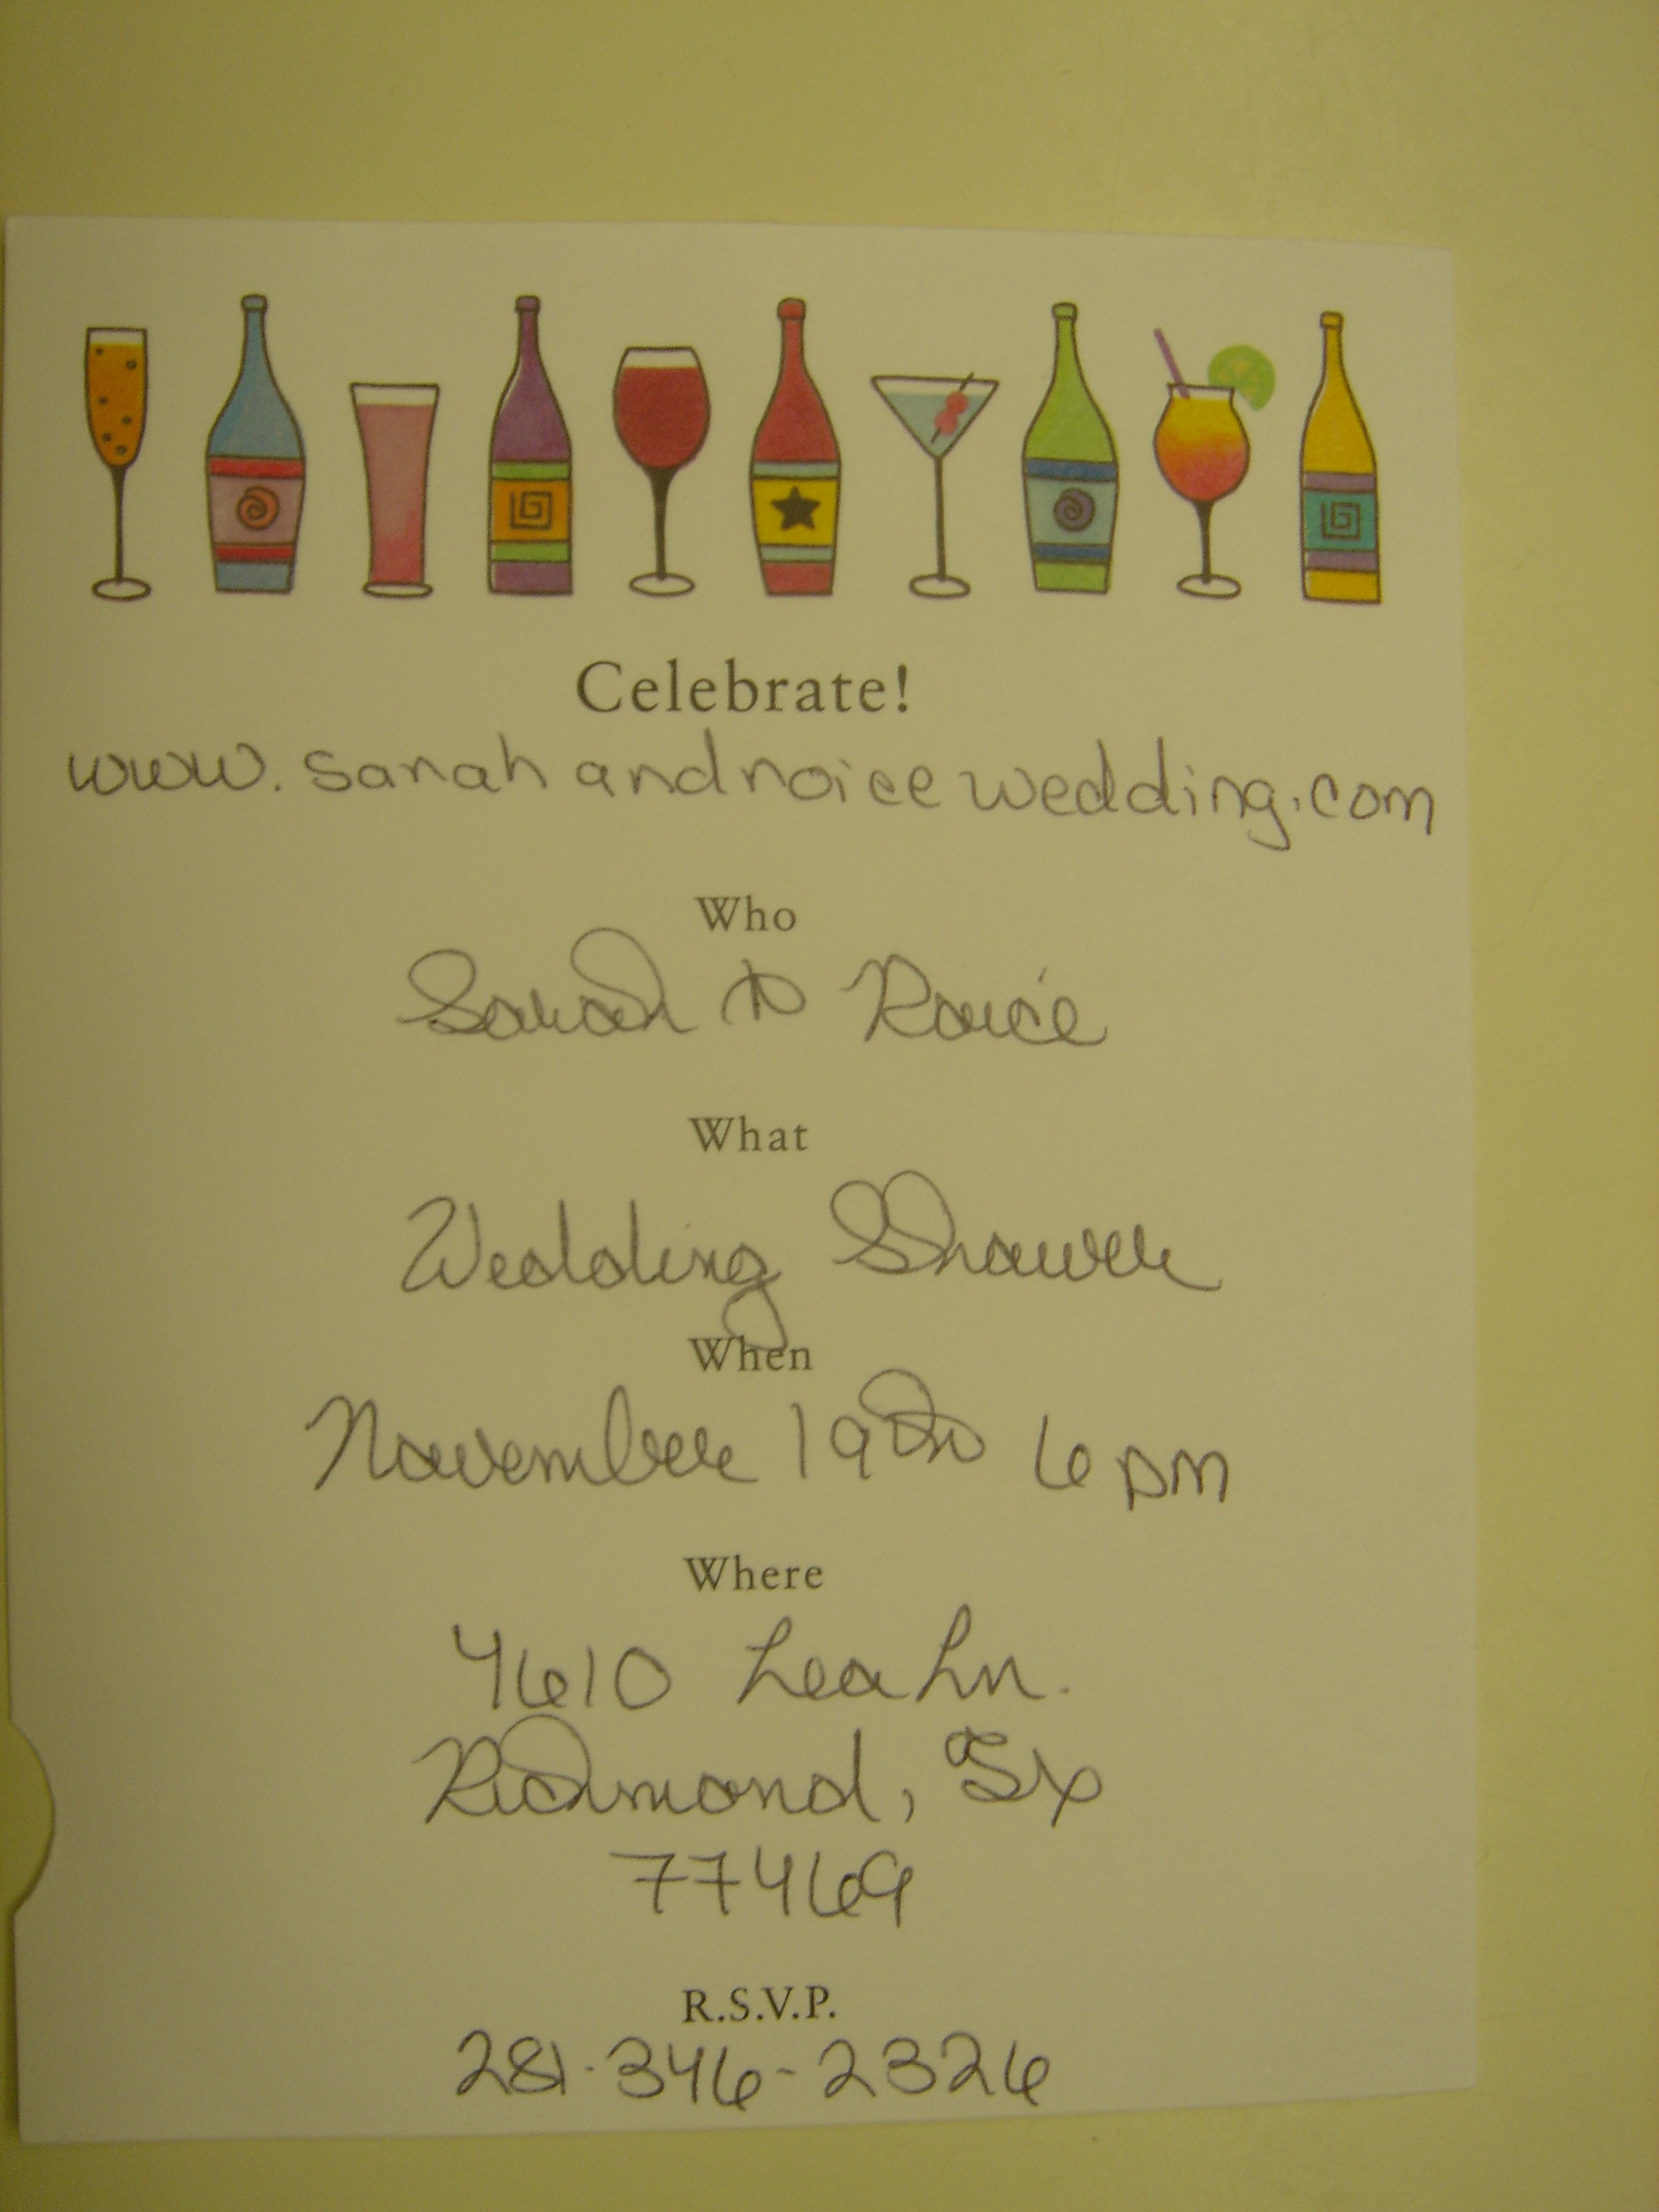 Celebrate!
www.sarahandroicewedding.com
Who
Sarah & Roice
What
Wedding Shower
When
November 19th 6pm
Where
4610 Lea Ln.
Richmond, Tx
77469
R.S.V.P.
281-346-2326